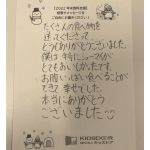 【2022 年末食料支援】
感謝のメッセージを
ご自由にお書きください!
たくさんの食べ物を
送ってくださって
どうもありがとうございました。
僕は特にシューマイが
とてもおいしかったです。
お腹いっぱい食べることが
できて幸せでした。
本当にありがとう
ございました…
KIDSDOOR
キッズドア